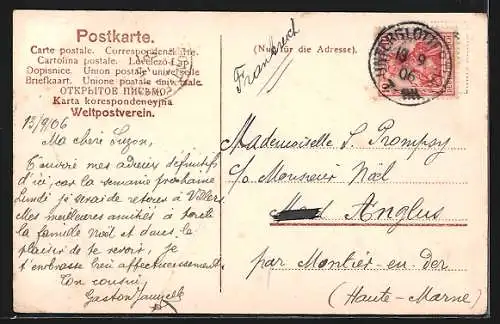 Postkarte.
Carte postale. Correspondenzkarte.
Cartolina postale. Levelező-Lap.
Dopisnice. Union postale universelle
Briefkaart. Unione postale universale.
ОТКРЫТОЕ ПИСЬМО
Karta korespondencyjna
Weltpostverein.
(Nur für die Adresse).
Frankreich
13/9/06
Ma cheri Suzon,
mes adieux définitifs
d'ici, car la semaine prochaine
lundi je serai de retour à Villers
Mes meilleures amitiés à toute
la famille Noël et dans le
plaisir de te revoir, je
t'embrasse bien affectueusement
Ton cousin,
Gaston
Mademoiselle S. Prompsy
c/o Monsieur Noël
Anglus
par Montier-en-der
(Haute-Marne)